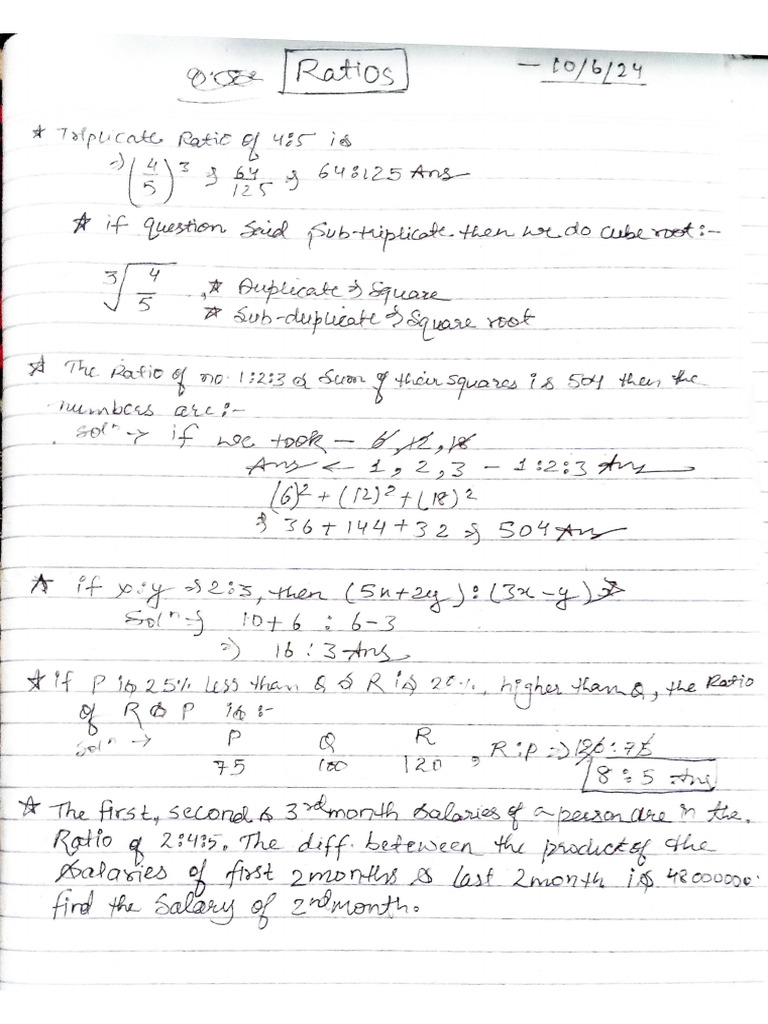 Ratios
- 10/6/24
★ Triplicate Ratio of 4:5 is
⇒ (4/5)³ ⇒ 64/125 ⇒ 64:125 Ans
★ if question Said Sub-triplicate then we do cube root:-
∛4/5 , ★ Duplicate ⇒ Square
★ Sub-duplicate ⇒ Square root
★ The Ratio of no. 1:2:3 & Sum of their squares is 504 then the
numbers are:-
Solⁿ → if we took - 6, 12, 18
Ans ← 1, 2, 3 - 1:2:3 Ans
(6)² + (12)² + (18)²
⇒ 36 + 144 + 32 ⇒ 504 Ans
★ if x:y ⇒ 2:3, then (5x+2y):(3x-y) ⇒
Solⁿ ⇒ 10+6 : 6-3
⇒ 16 : 3 Ans
★ if P is 25% less than Q & R is 20%, higher than Q, the Ratio
of R & P is:-
Solⁿ → P Q R
75 100 120 , R:P ⇒ 120:75
8:5 Ans
★ The first, second & 3rd month Salaries of a person are in the.
Ratio of 2:4:5. The diff. beteween the product of the
Salaries of first 2 months & last 2 month is 48000000.
find the Salary of 2nd month.